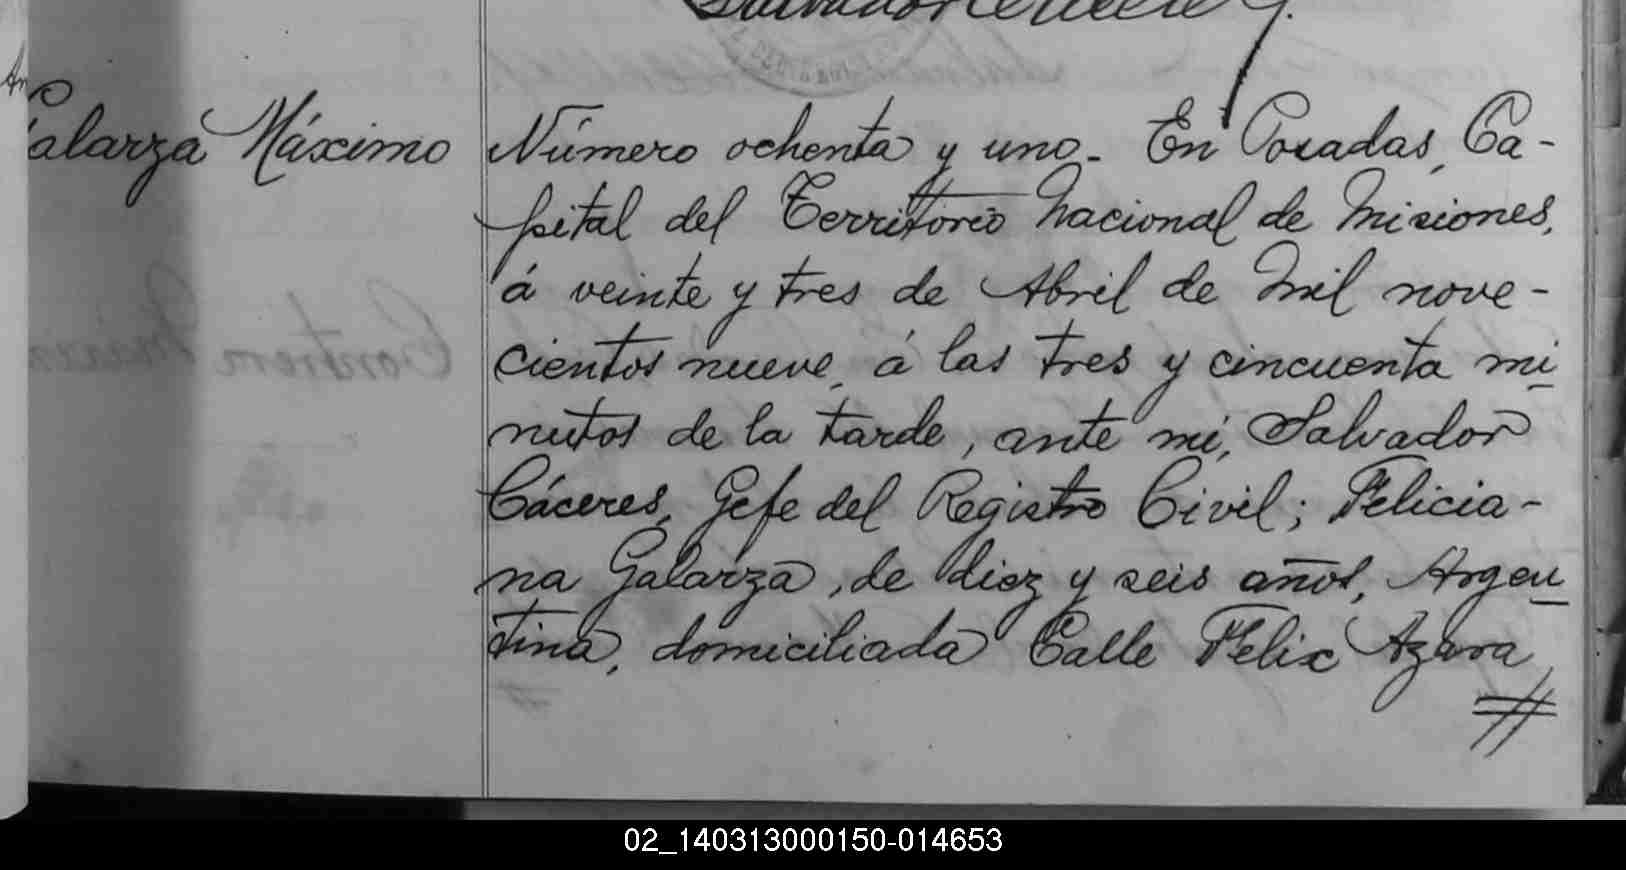 Salvador Cáceres G.
Galarza Máximo
Número ochenta y uno. En Posadas, Ca-
pital del Territorio Nacional de Misiones,
á veinte y tres de Abril de mil nove-
cientos nueve, á las tres y cincuenta mi-
nutos de la tarde, ante mi, Salvador
Cáceres, Gefe del Registro Civil; Felicia-
na Galarza, de diez y seis años, Argen-
tina, domiciliada Calle Felix Azara,
02_140313000150-014653